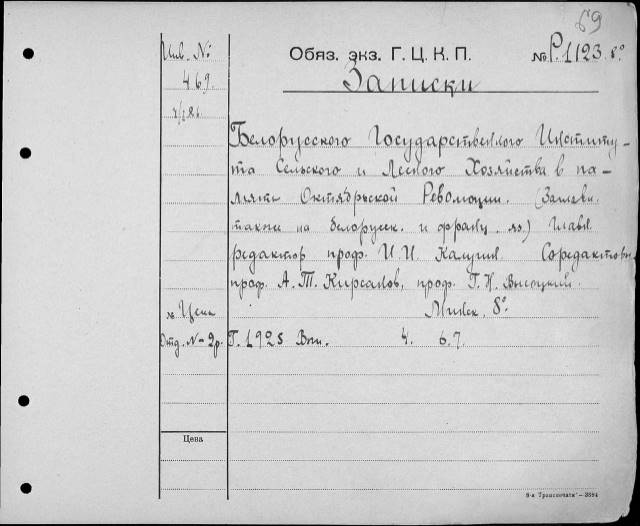 69
Инв. №
469.
Обяз. экз. Г. Ц. К. П.
№ Р.1123 8°
Записки
Белорусского Государственного Институ-
та Сельского и Лесного Хозяйства в па-
мять Октябрьской Революции. (Заглавие
также на белорусск. и франц. яз.) Главн.
редактор проф. И.И. Калугин. Соредакторы
проф. А.Т. Кирсанов, проф. Г.Н. Высоцкий.
Минск. 8°.
№ Цена
Отд. № - 2р.
Г. 1925 Вып. 4. 6.7.
Цена
8-я Транспечати — 3894